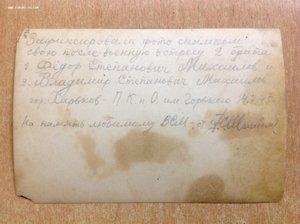 Зафиксировали фото снимком
свою после военную встречу 2 брата
1. Фёдор Степанович Михайлов и
2. Владимир Степанович Михайлов
гор. Харьков - П.К. и О. им Горького
На память любимому